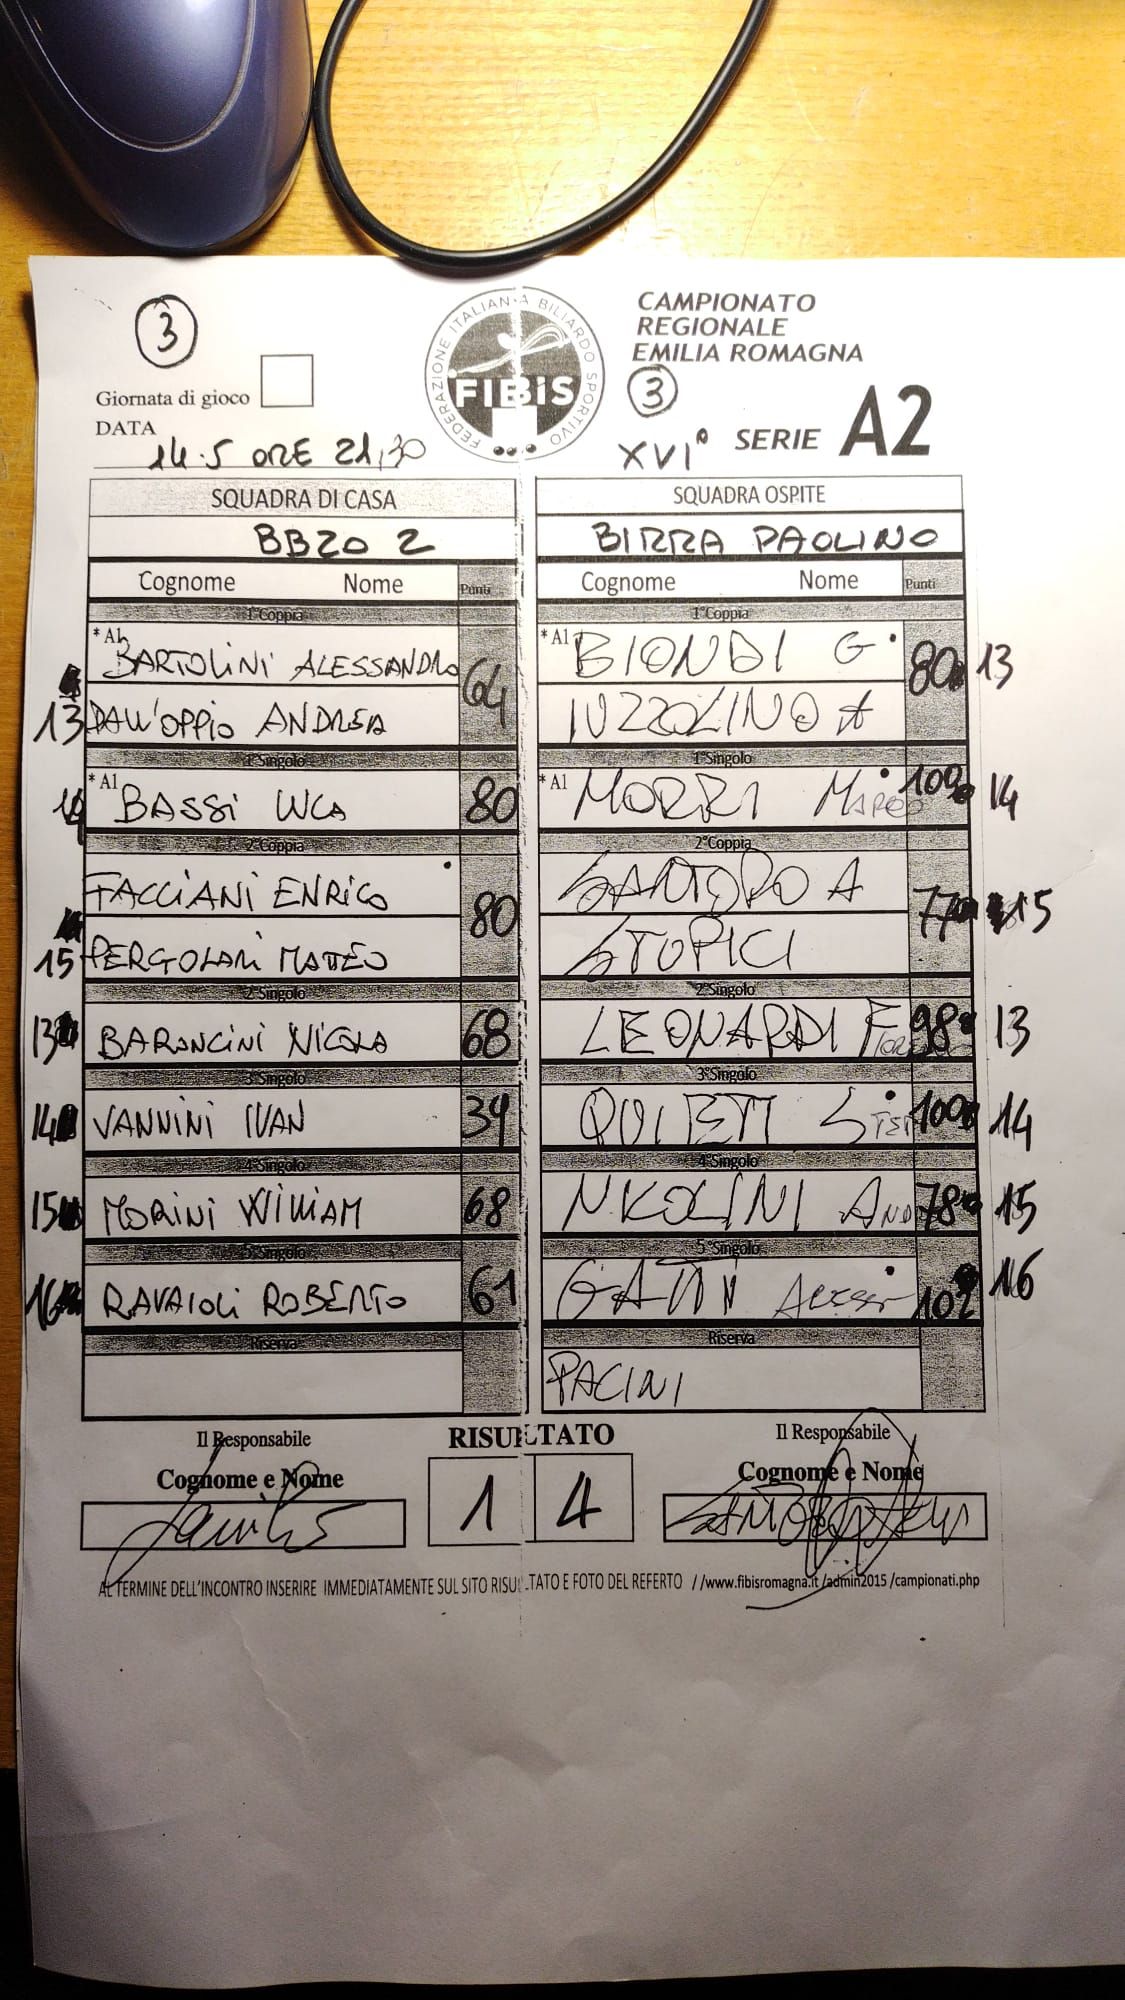 3
FEDERAZIONE ITALIANA BILIARDO SPORTIVO
FIBiS
CAMPIONATO
REGIONALE
EMILIA ROMAGNA
3
Giornata di gioco
DATA
14.5 ORE 21,30
XVI° SERIE A2
SQUADRA DI CASA SQUADRA OSPITE
BBZO 2 BIRRA PAOLINO
Cognome Nome Punti Cognome Nome Punti
1°Coppia 1°Coppia
BARTOLINI ALESSANDRO 64 *A1 BIONDI G 80 13
13 DALL'OPPIO ANDREA IUZZOLINO A
1°Singolo 1°Singolo
14 *A1 BASSI LUCA 80 *A1 MORRI MARCO 100 14
2°Coppia 2°Coppia
FACCIANI ENRICO 80 SANTORO A 77 15
15 PERGOLARI MATTEO STOPICI
2°Singolo 2°Singolo
13 BARONCINI NICOLA 68 LEONARDI 98 13
3°Singolo 3°Singolo
14 VANNINI IVAN 39 100 14
4°Singolo 4°Singolo
15 MORINI WILLIAM 68 NICOLINI 78 15
5°Singolo 5°Singolo
16 RAVAIOLI ROBERTO 61 GATTI 102 16
Riserva Riserva
PACINI
Il Responsabile RISULTATO Il Responsabile
Cognome e Nome Cognome e Nome
1 4
AL TERMINE DELL'INCONTRO INSERIRE IMMEDIATAMENTE SUL SITO RISULTATO E FOTO DEL REFERTO //www.fibisromagna.it /admin2015 /campionati.php